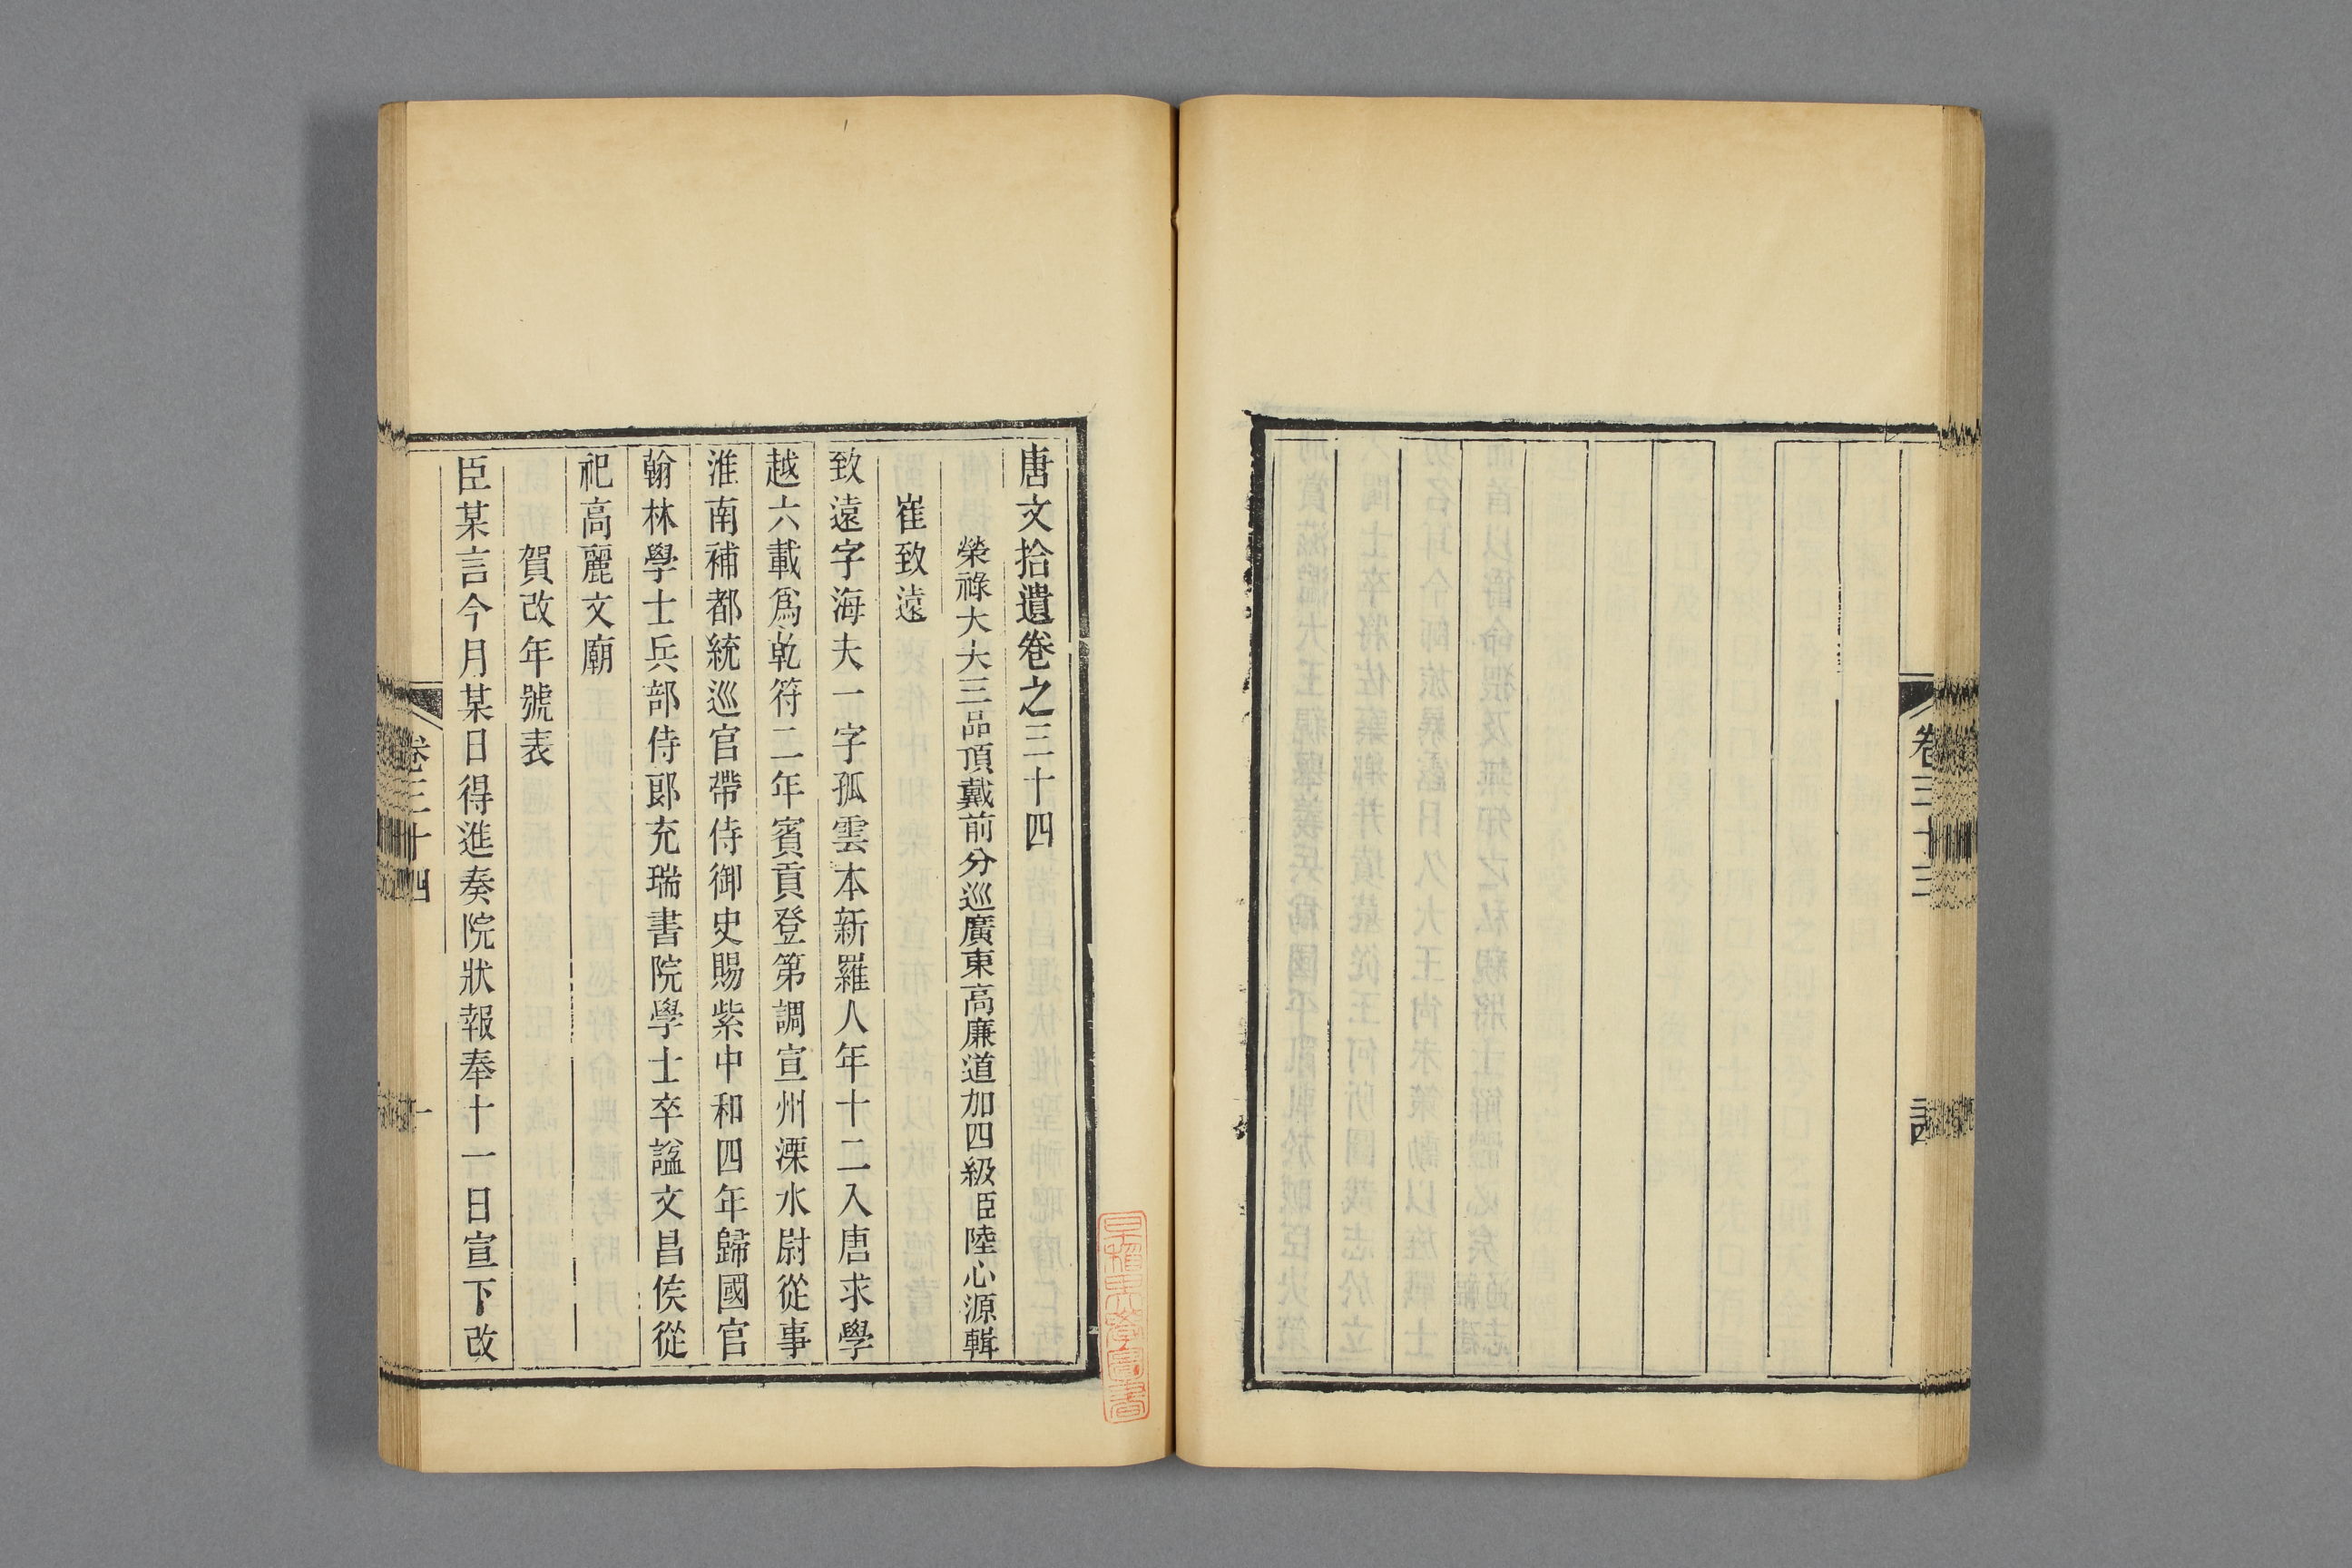 卷三十三
唐文拾遺卷之三十四
榮祿大夫三品頂戴前分巡廣東高廉道加四級臣陸心源輯
崔致遠
致遠字海夫一字孤雲本新羅人年十二入唐求學
越六載爲乾符二年賓貢登第調宣州溧水尉從事
淮南補都統巡官帶侍御史賜紫中和四年歸國官
翰林學士兵部侍郎充瑞書院學士卒諡文昌侯從
祀高麗文廟
賀改年號表
臣某言今月某日得進奏院狀報奉十一日宣下改
卷三十四
一